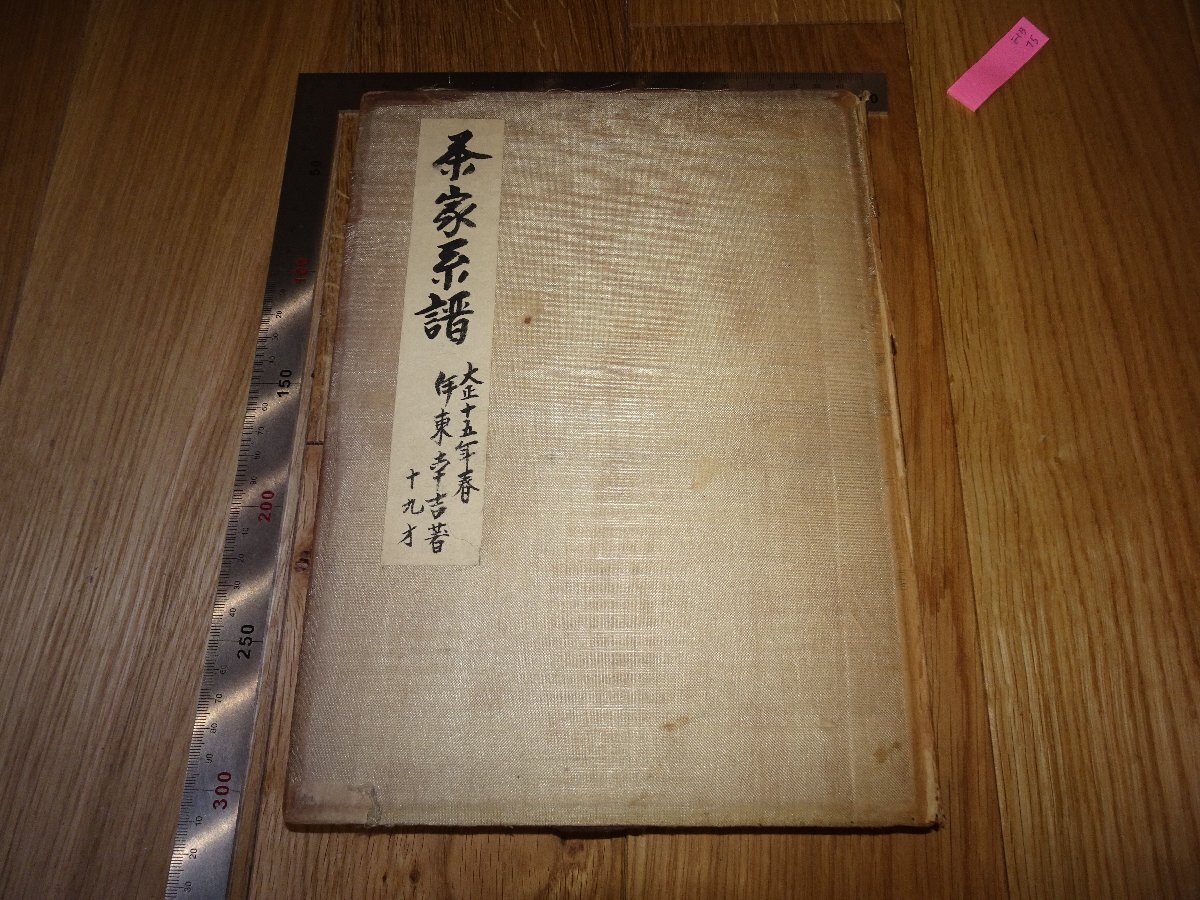 家系譜
大正十五年春
伊東幸吉著
十九才
50
100
150
200
250
300
75